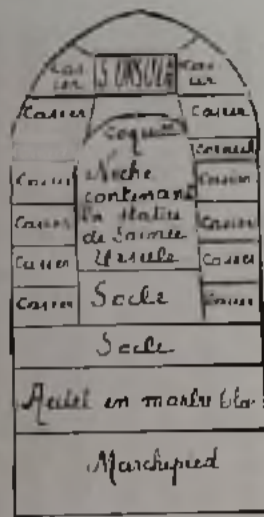 Cas
ier
S. URSULA
Cas
ier
Casier
Casier
Coquille
Niche
contenant
la statue
de Sainte
Ursule
Casier
Casier
Casier
Casier
Casier
Casier
Casier
Casier
Socle
Socle
Autel en marbre bla.
Marchepied